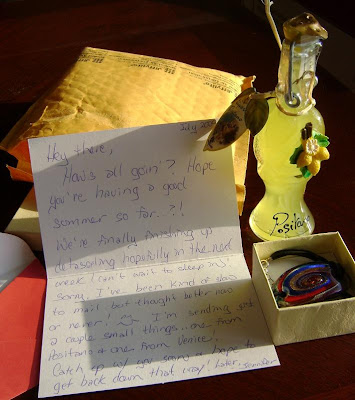 July
Hey there,
How's all goin'? Hope
you're having a good
summer so far..?!
We're finally finishing up
detasseling hopefully in the next
week I can't wait to sleep in!
Sorry I've been kind of slow
to mail but thought better now
or never! I'm sending you
a couple small things.. one from
Positano & one from Venice.
Catch up w/ you soon & hope to
get back down that way! Later,
Posita